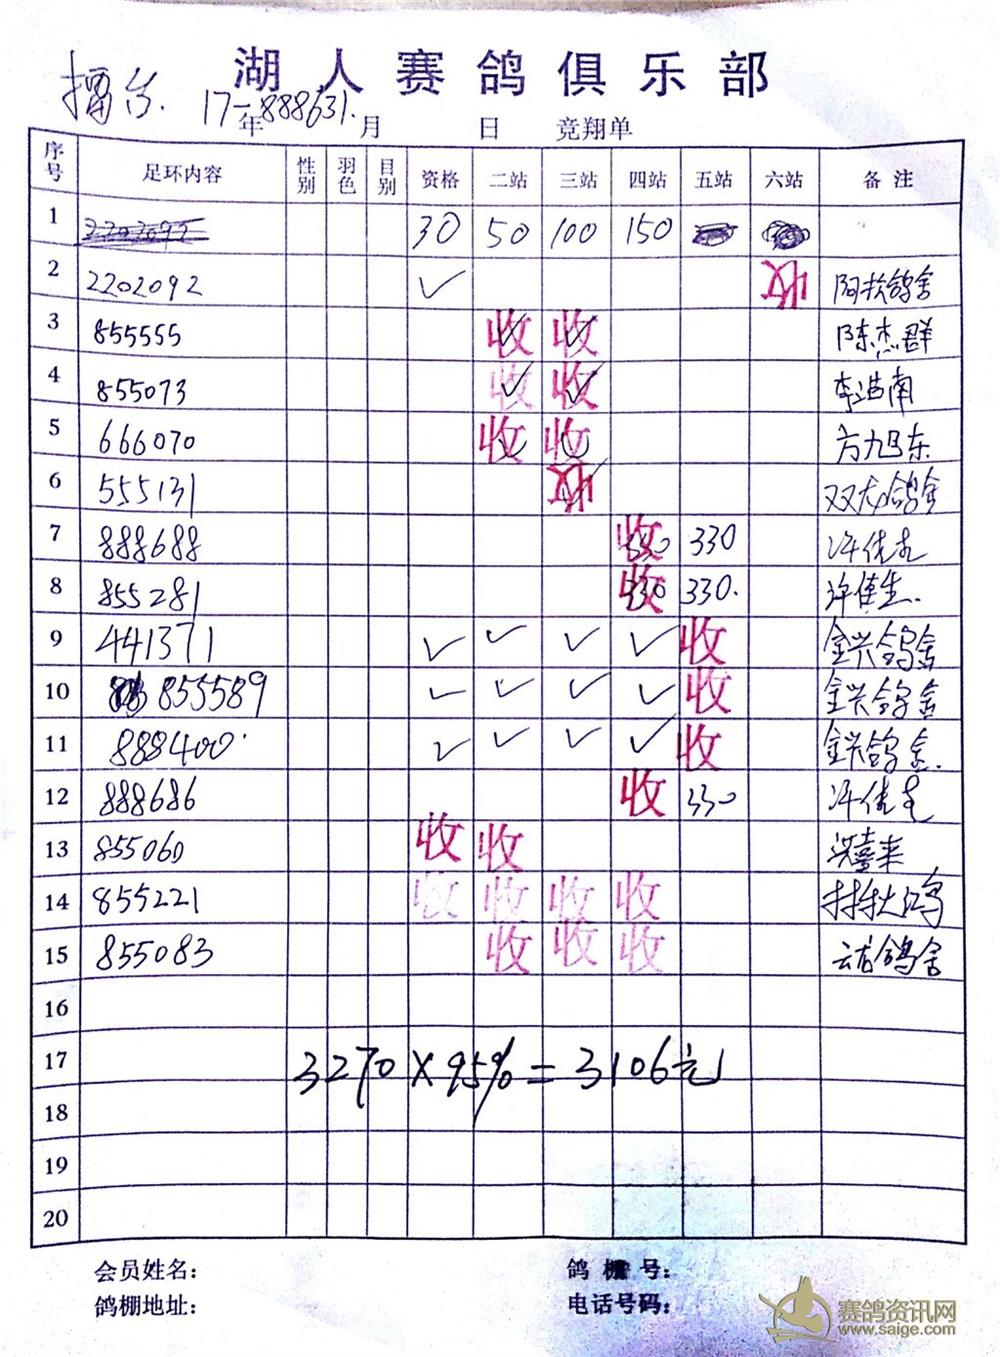 湖人赛鸽俱乐部
擂台. 17-888631.
年 月 日 竞翔单
序号 足环内容 性别 羽色 目别 资格 二站 三站 四站 五站 六站 备注
1 30 50 100 150
2 2202092 ✓ 收
3 855555 收 收 陈杰群
4 855073 收 收
5 666070 收 收 方旭东
6 555131 收
7 888688 收 330 330
8 855281 收 330 330.
9 441371 ✓ ✓ ✓ ✓ 收 金兴鸽舍
10 855589 ✓ ✓ ✓ ✓ 收 金兴鸽舍
11 888400 ✓ ✓ ✓ ✓ 收 金兴鸽舍.
12 888686 收 330
13 855060 收 收
14 855221 收 收 收 收
15 855083 收 收 收 云龙鸽舍
16
17 3270×95%=3106元
18
19
20
会员姓名: 鸽棚号:
鸽棚地址: 电话号码:
赛鸽资讯网
www.saige.com